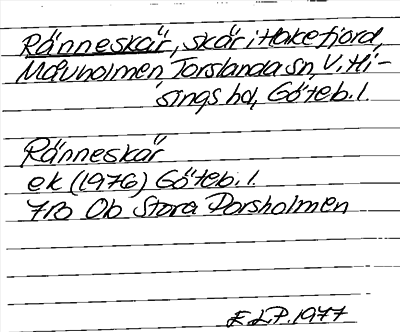 Ränneskär, skär i Hakefjord,
Måvholmen Torslanda sn, V. Hi-
sings hd, Göteb. l.
Ränneskär
ek (1976) Göteb. l.
7B Ob Stora Porsholmen
E.L.P. 1977